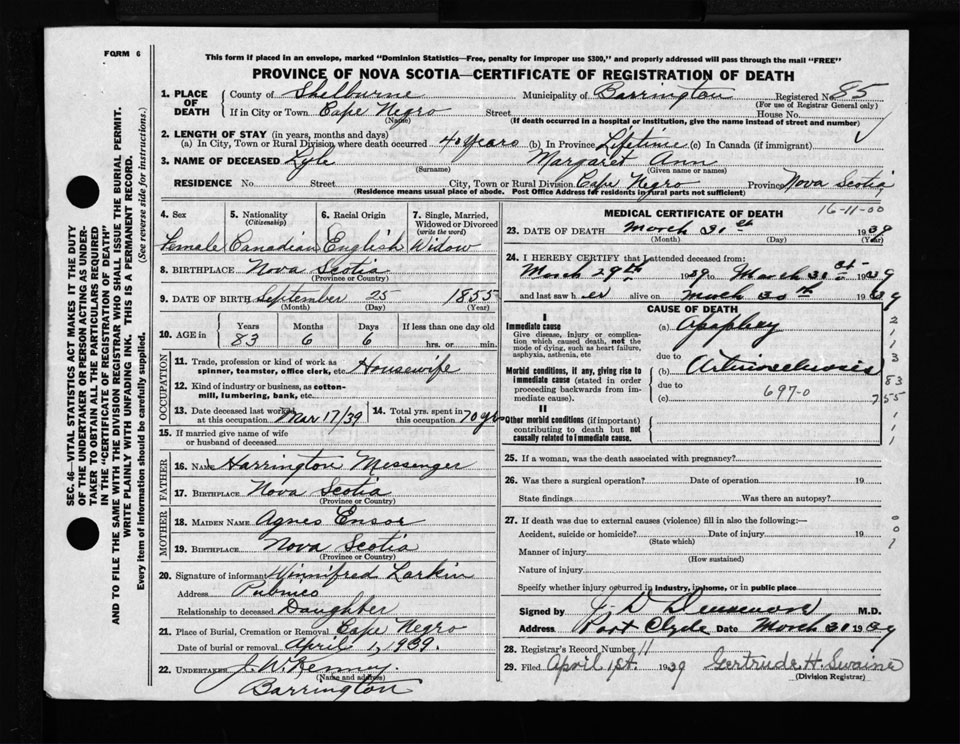 FORM 6
This form if placed in an envelope, marked "Dominion Statistics—Free, penalty for improper use $300," and properly addressed will pass through the mail "FREE"
PROVINCE OF NOVA SCOTIA—CERTIFICATE OF REGISTRATION OF DEATH
1. PLACE OF DEATH
County of Shelburne Municipality of Barrington Registered No. 85
(For use of Registrar General only)
If in City or Town Cape Negro Street House No.
(Name) (If death occurred in a hospital or institution, give the name instead of street and number)
2. LENGTH OF STAY (in years, months and days)
(a) In City, Town or Rural Division where death occurred 40 years (b) In Province Lifetime (c) In Canada (if immigrant)
3. NAME OF DECEASED Lyle Margaret Ann
(Surname) (Given name or names)
RESIDENCE No. Street City, Town or Rural Division Cape Negro Province Nova Scotia
(Residence means usual place of abode. Post Office Address for residents in rural parts not sufficient)
4. Sex 5. Nationality (Citizenship) 6. Racial Origin 7. Single, Married, Widowed or Divorced (write the word)
Female Canadian English Widow
8. BIRTHPLACE Nova Scotia
(Province or Country)
9. DATE OF BIRTH September 25 1855
(Month) (Day) (Year)
10. AGE in Years Months Days If less than one day old
83 6 6 hrs. or min.
OCCUPATION
11. Trade, profession or kind of work as spinner, teamster, office clerk, etc. Housewife
12. Kind of industry or business, as cotton-mill, lumbering, bank, etc.
13. Date deceased last worked at this occupation Mar 17/39 14. Total yrs. spent in this occupation 70 yrs
15. If married give name of wife or husband of deceased
FATHER
16. Name Harrington Messenger
17. Birthplace Nova Scotia
(Province or Country)
MOTHER
18. Maiden Name Agnes Ensor
19. Birthplace Nova Scotia
(Province or Country)
20. Signature of informant Winnifred Larkin
Address Pubnico
Relationship to deceased Daughter
21. Place of Burial, Cremation or Removal Cape Negro
Date of burial or removal April 1, 1939.
22. Undertaker J. W. Kenney.
(Name and address)
Barrington
MEDICAL CERTIFICATE OF DEATH
16-11-00
23. DATE OF DEATH March 31st 1939
(Month) (Day) (Year)
24. I HEREBY CERTIFY that I attended deceased from:
March 29th 1939 to March 31st 1939
and last saw her alive on March 30th 1939
CAUSE OF DEATH
I
Immediate cause
Give disease, injury or complication which caused death, not the mode of dying, such as heart failure, asphyxia, asthenia, etc
(a) Apoplexy
due to
Morbid conditions, if any, giving rise to immediate cause (stated in order proceeding backwards from immediate cause).
(b) Arteriosclerosis
due to 697-0
(c)
II
Other morbid conditions (if important) contributing to death but not causally related to immediate cause.
25. If a woman, was the death associated with pregnancy?
26. Was there a surgical operation? Date of operation 19
State findings Was there an autopsy?
27. If death was due to external causes (violence) fill in also the following:—
Accident, suicide or homicide? Date of injury 19
(State which)
Manner of injury
(How sustained)
Nature of injury
Specify whether injury occurred in industry, in home, or in public place
Signed by M.D.
Address Port Clyde Date March 31 1939
28. Registrar's Record Number 11
29. Filed April 1st. 1939 Gertrude H. Swaine
(Division Registrar)
SEC. 46—VITAL STATISTICS ACT MAKES IT THE DUTY
OF THE UNDERTAKER OR PERSON ACTING AS UNDER-
TAKER TO OBTAIN ALL THE PARTICULARS REQUIRED
IN THE "CERTIFICATE OF REGISTRATION OF DEATH"
AND TO FILE THE SAME WITH THE DIVISION REGISTRAR WHO SHALL ISSUE THE BURIAL PERMIT.
WRITE PLAINLY WITH UNFADING INK. THIS IS A PERMANENT RECORD.
Every item of information should be carefully supplied. (See reverse side for instructions.)